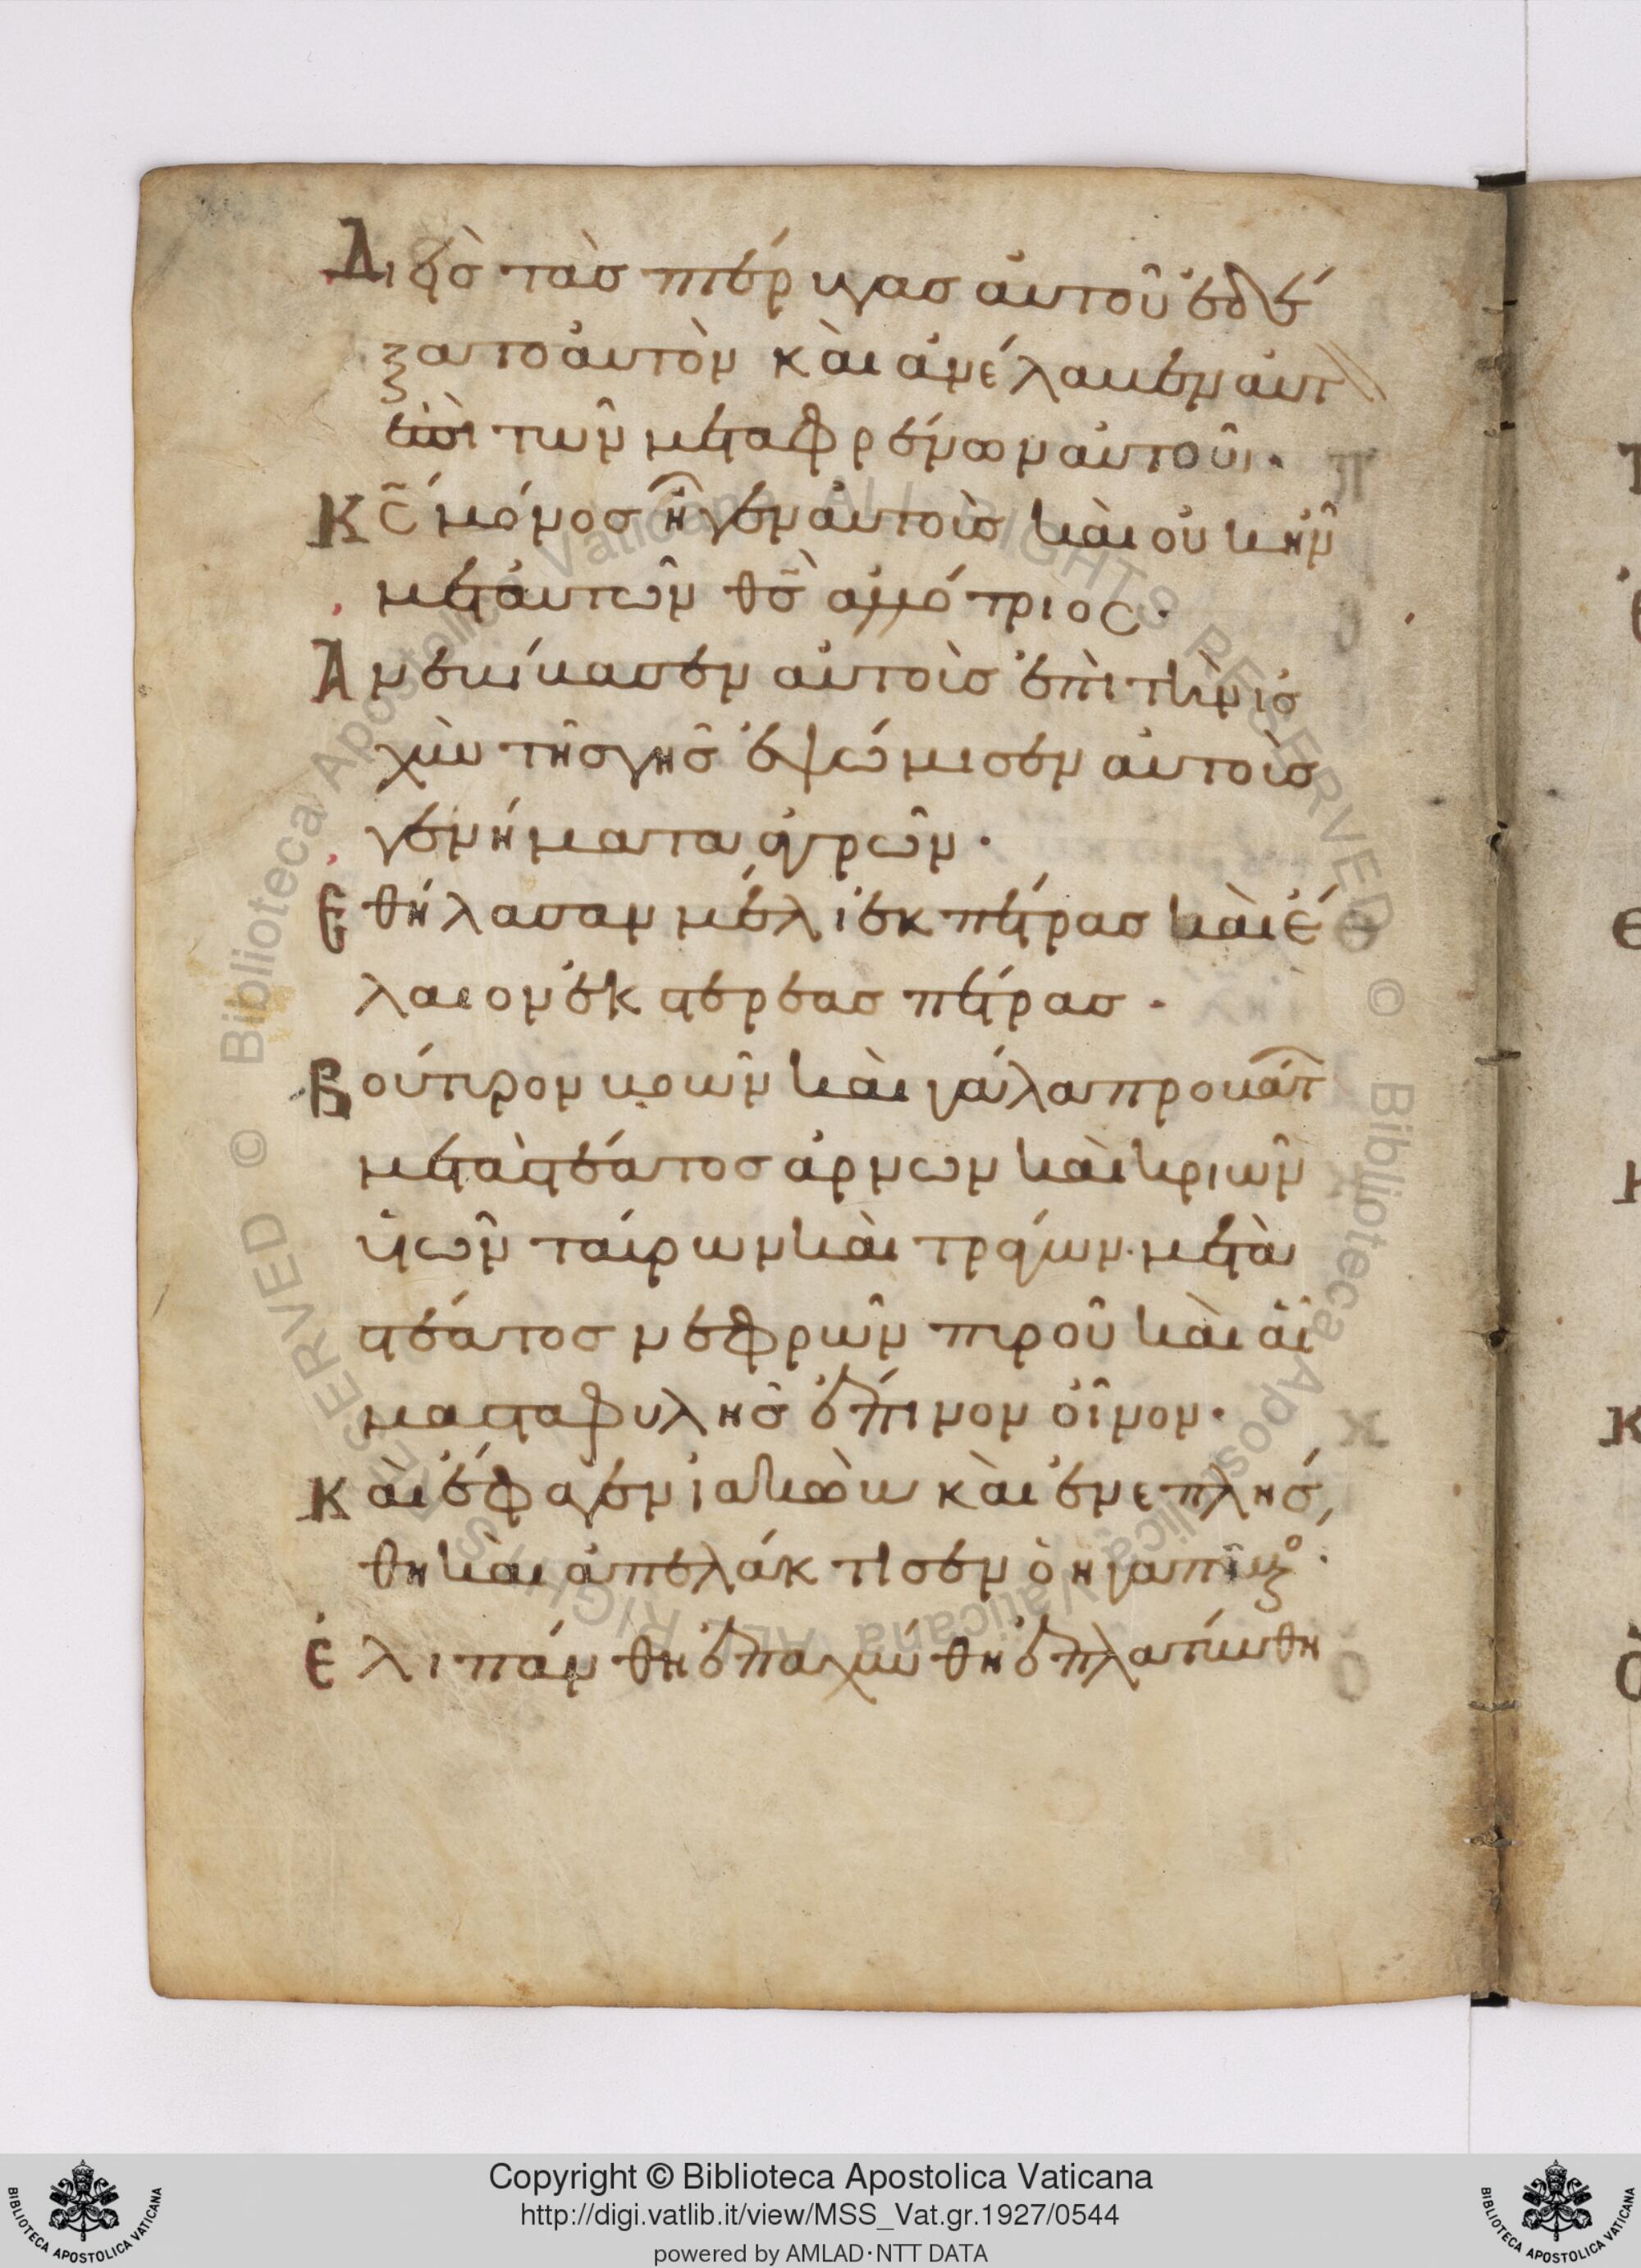 Διεὶς τὰς πτέρυγας αὐτοῦ ἐδέ
ξατο αὐτὸν καὶ ἀνέλαβεν αὐτ
ἐπὶ τῶν μεταφρένων αὐτοῦ.
Κς μόνος ἦγεν αὐτοὺς καὶ οὐκ ἦν
μετ αὐτῶν θς ἀλλότριος.
Ἀνεβίβασεν αὐτοὺς ἐπὶ τὴν ἰσ
χὺν τῆς γῆς ἐψώμισεν αὐτοὺς
γενήματα ἀγρῶν.
Ἐθήλασαν μέλι ἐκ πέτρας καὶ ἔ
λαιον ἐκ στερεᾶς πέτρας.
Βούτυρον βοῶν καὶ γάλα προβάτ
μετὰ στέατος ἀρνῶν καὶ κριῶν
υἱῶν ταύρων καὶ τράγων. μετὰ
στέατος νεφρῶν πυροῦ καὶ αἷ
μα σταφυλῆς ἔπινον οἶνον.
Καὶ ἔφαγεν ἰακὼβ καὶ ἐνεπλήσ
θη καὶ ἀπελάκτισεν ὁ ἠγαπημ
Ἐλιπάνθη ἐπαχύνθη ἐπλατύνθη
Copyright © Biblioteca Apostolica Vaticana
http://digi.vatlib.it/view/MSS_Vat.gr.1927/0544
powered by AMLAD·NTT DATA